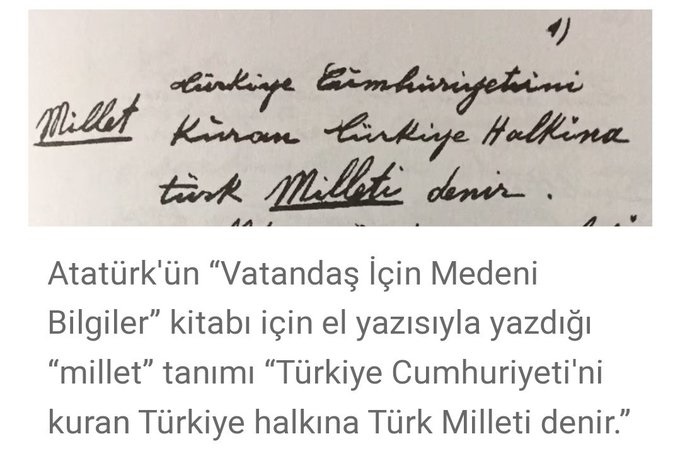 1)
Millet
Türkiye Cümhüriyetini
Küran Türkiye Halkına
türk Milleti denir.
Atatürk'ün “Vatandaş İçin Medeni
Bilgiler” kitabı için el yazısıyla yazdığı
“millet” tanımı “Türkiye Cumhuriyeti'ni
kuran Türkiye halkına Türk Milleti denir.”